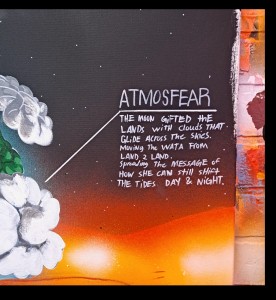 ATMOSFEAR
THE MOON GIFTED tHE
LANDS WITH CLOUDS THAT
GLIDE ACROSS THE SKIES.
MOVING THE WATA FROM
LAND 2 LAND.
SPREADING THE MESSAGE OF
HOW SHE CAN STILL SHIFT
THE TIDES DAY & NIGHT.